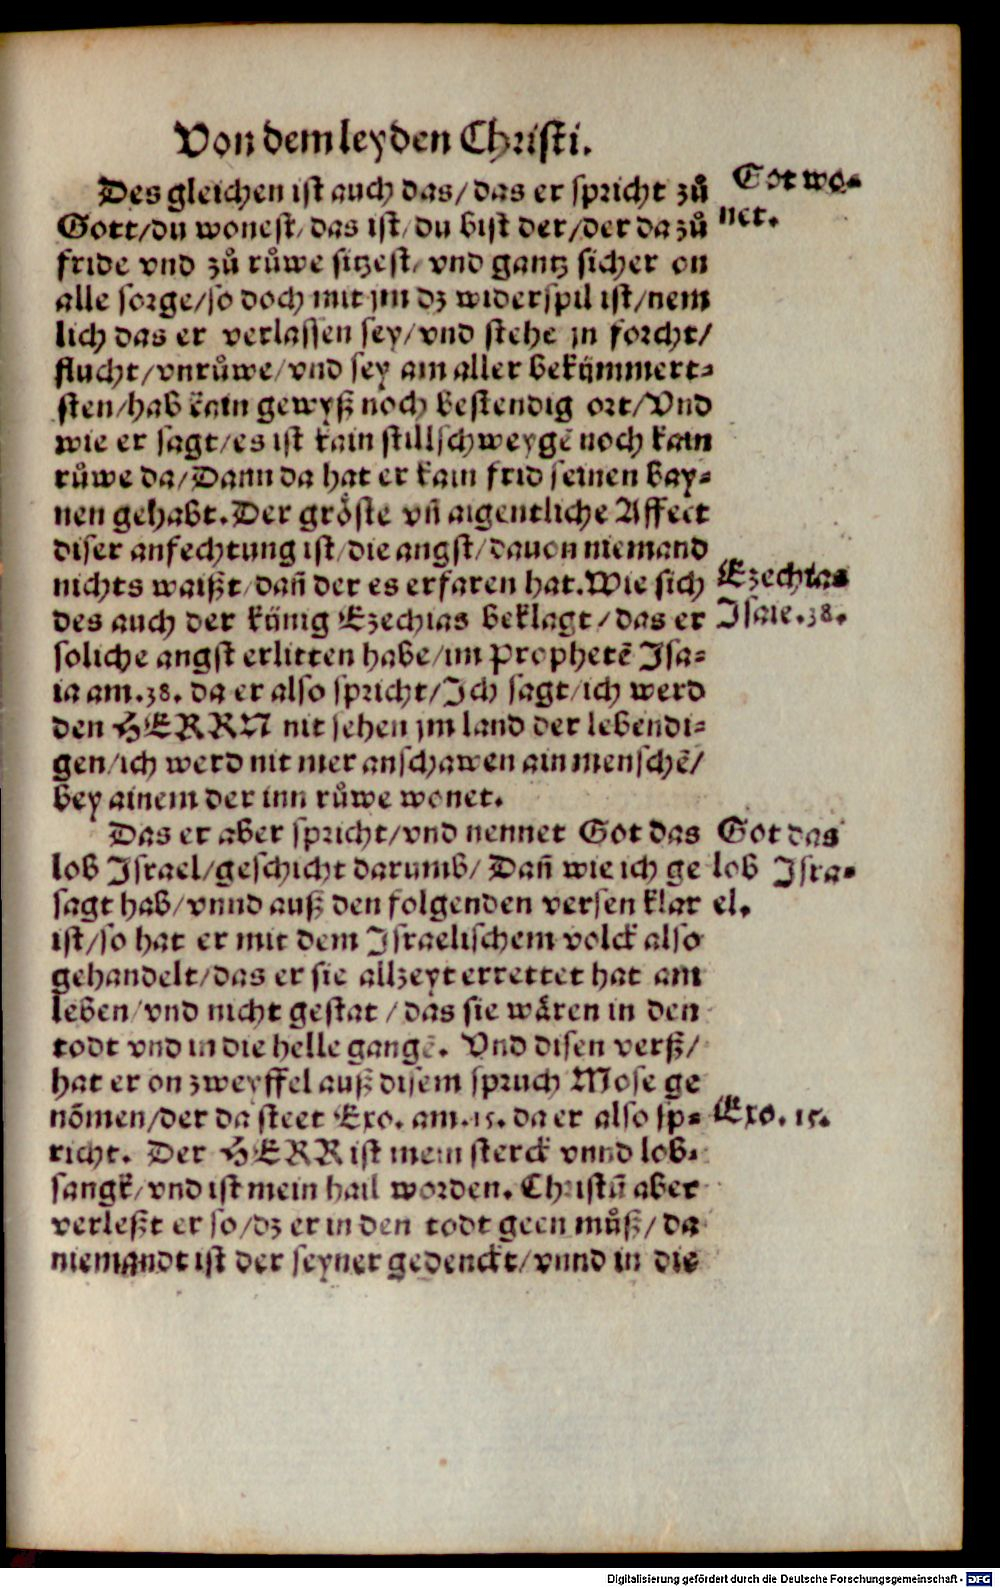 Von dem leyden Christi.
Des gleichen ist auch das/das er spricht zů
Gott/du wonest/das ist/du bist der/der da zů
fride vnd zů růwe sitzest/vnd gantz sicher on
alle sorge/so doch mit jm dz widerspil ist/nem
lich das er verlassen sey/vnd stehe jn forcht/
flucht/vnrůwe/vnd sey am aller bekümmert-
sten/hab kain gewyß noch bestendig ort/Vnd
wie er sagt/es ist kain stillschweygē noch kain
růwe da/Dann da hat er kain frid seinen bay-
nen gehabt. Der gröste vñ aigentliche Affect
diser anfechtung ist/die angst/dauon niemand
nichts waißt/dañ der es erfaren hat. Wie sich
des auch der künig Ezechias beklagt/das er
soliche angst erlitten habe/im Prophetē Jsa-
ia am.38. da er also spricht/Jch sagt/ich werd
den HERRN nit sehen jm land der lebendi-
gen/ich werd nit mer anschawen ain menschē/
bey ainem der inn růwe wonet.
Das er aber spricht/vnd nennet Got das
lob Jsrael/geschicht darumb/Dañ wie ich ge
sagt hab/vnnd auß den folgenden versen klar
ist/so hat er mit dem Jsraelischem volck also
gehandelt/das er sie allzeyt errettet hat am
leben/vnd nicht gestat/das sie wären in den
todt vnd in die helle gangē. Vnd disen verß/
hat er on zweyffel auß disem spruch Mose ge
nōmen/der da steet Exo. am.15. da er also sp-
richt. Der HERR ist mein sterck vnnd lob-
sangk/vnd ist mein hail worden. Christū aber
verleßt er so/dz er in den todt geen můß/da
niemandt ist der seyner gedenckt/vnnd in die
Got wo-
net.
Ezechias
Jsaie.38.
Got das
lob Jsra-
el.
Exo. 15.
Digitalisierung gefördert durch die Deutsche Forschungsgemeinschaft - DFG